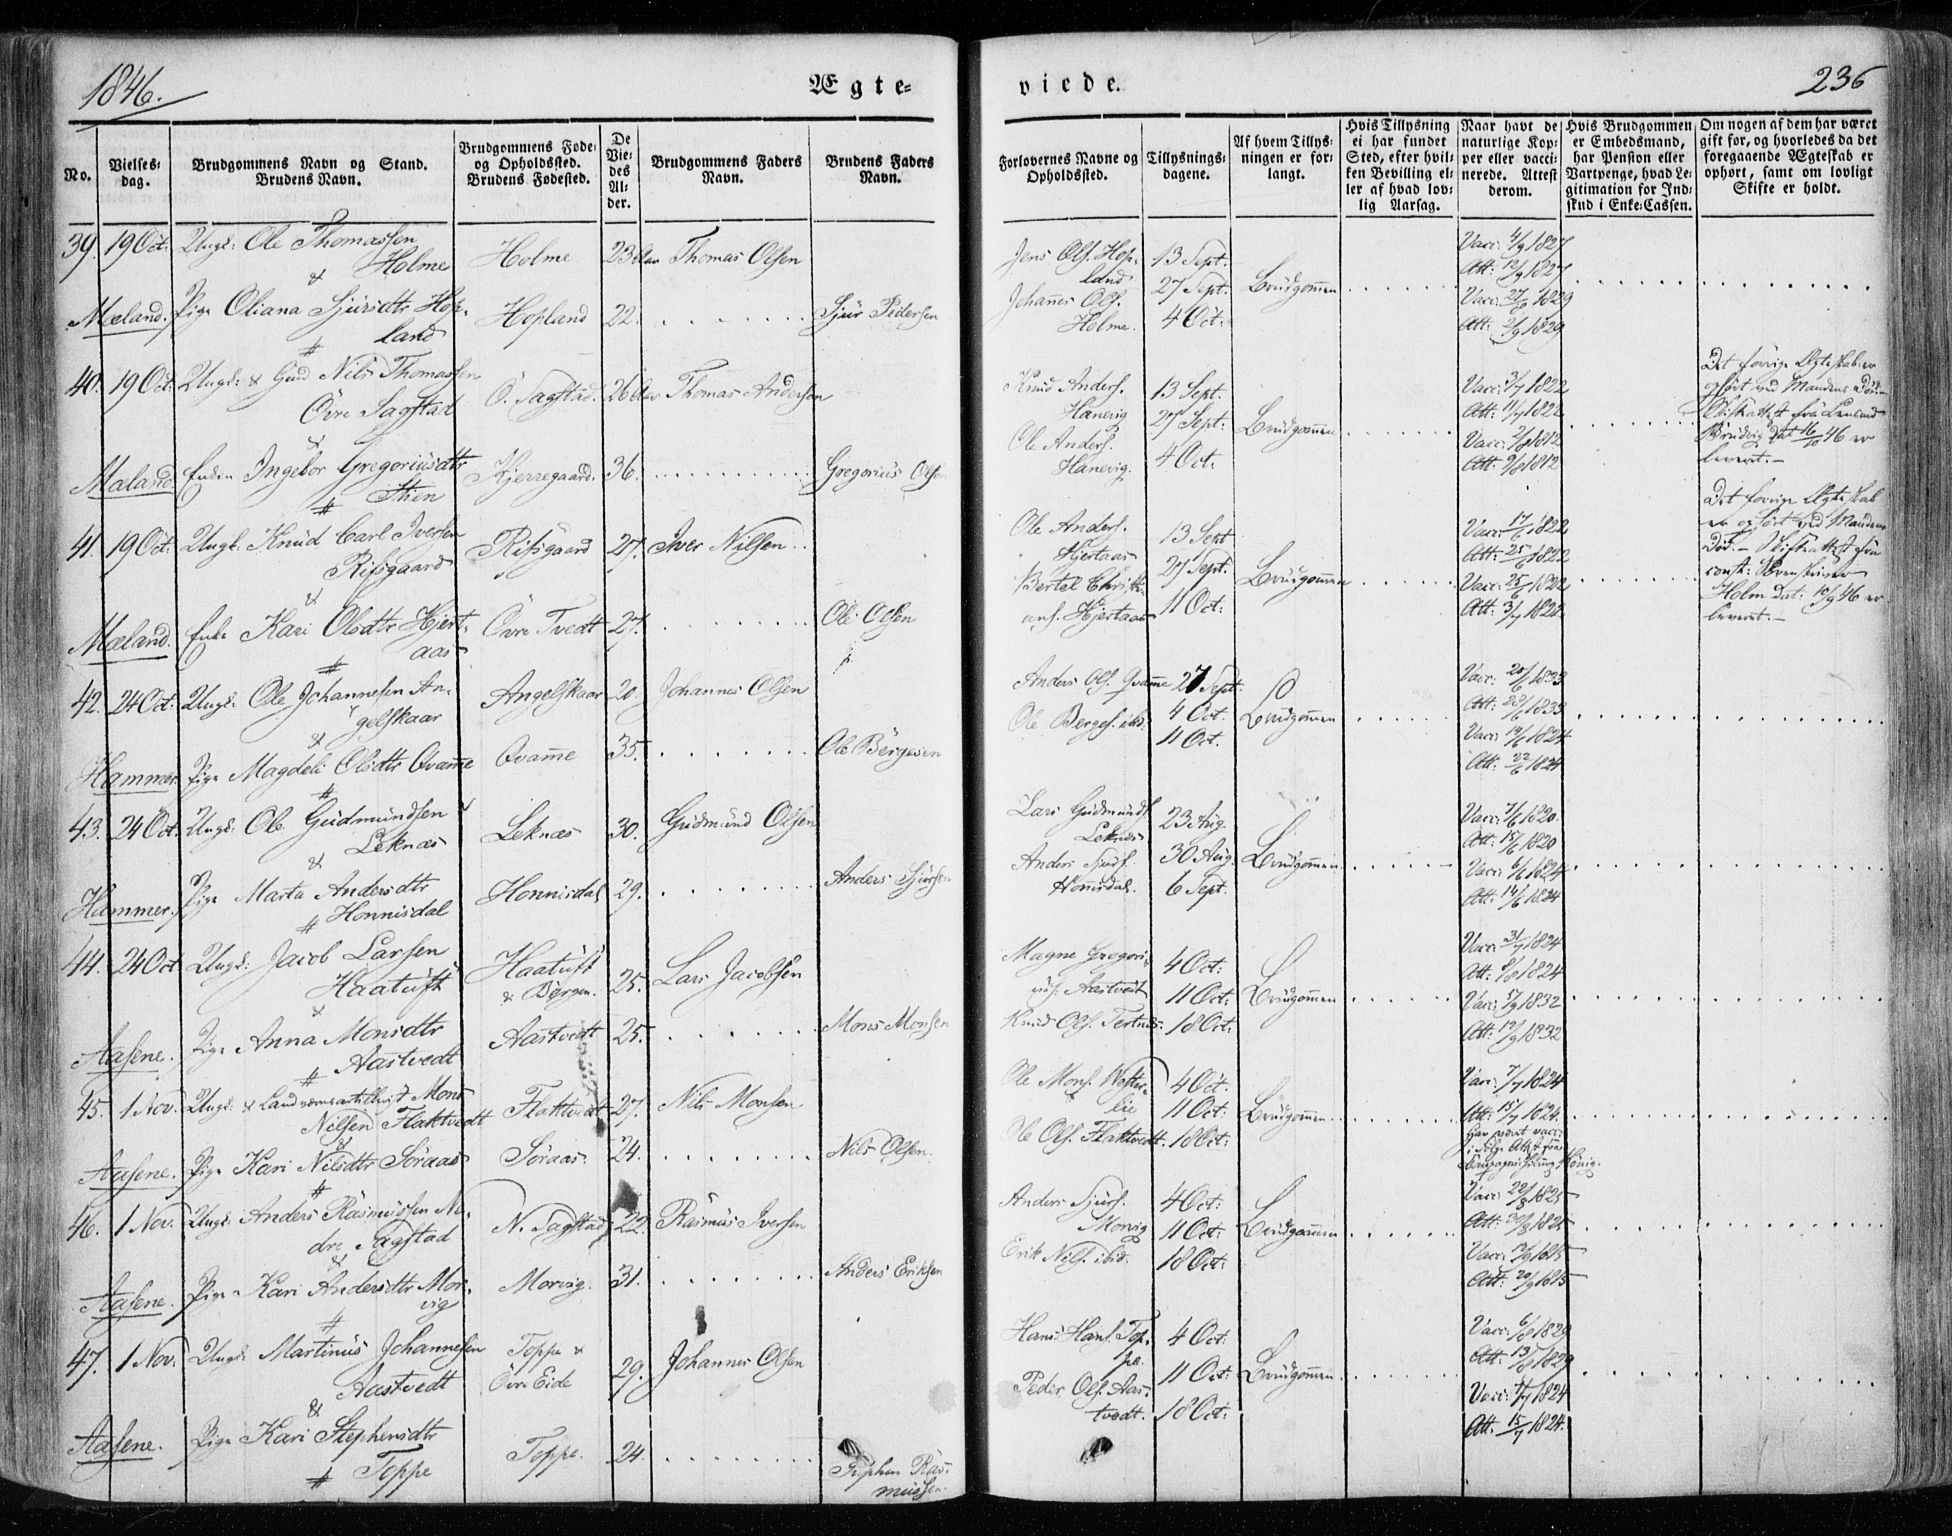 1846.
Ægte-
viede.
236
No.
Vielses-
dag.
Brudgommens Navn og Stand.
Brudens Navn.
Brudgommens Føde-
og Opholdssted.
Brudens Fødested.
De
Vie-
des
Al-
der.
Brudgommens Faders
Navn.
Brudens Faders
Navn.
Forlovernes Navne og
Opholdssted.
Tillysnings-
dagene.
Af hvem Tillys-
ningen er for-
langt.
Hvis Tillysning
ei har fundet
Sted, efter hvil-
ken Bevilling el-
ler af hvad lov-
lig Aarsag.
Naar havt de
naturlige Kop-
per eller vacci-
nerede. Attest
derom.
Hvis Brudgommen
er Embedsmand,
har Pension eller
Vartpenge, hvad Le-
gitimation for Ind-
skud i Enke-Cassen.
Om nogen af dem har været
gift før, og hvorledes da det
foregaaende Ægteskab er
ophørt, samt om lovligt
Skifte er holdt.
39. 19 Oct: Ungk: Ole Thomassen
Holme
Holme 23 Aar Thomas Olsen
&
Mæland. Pige Oliana Sjursdtr Hop-
land
Hopland 22. Sjur Pedersen
Jens Ols. Hop-
land
Johannes Ols.
Holme.
13 Sept.
27 Sept.
4 Oct:
Brudgommen
Vacc: 4/9 1827
Att: 12/9 1827
Vacc: 27/8 1829
Att: 2/9 1829
#
40. 19 Oct: Ungk: & Gmd Nils Thomassen
Övre Sagstad
Ö. Sagstad. 26 Aar Thomas Andersen
&
Mæland. Enken Ingebor Gregoriusdtr
Stien
Kjerregaard. 36. Gregorius Olsen
Knud Anders.
Hanevig
Ole Anders.
Hanevig.
13 Sept.
27 Sept:
4 Oct:
Brudgommen
Vacc: 3/7 1822
Att: 11/7 1822
Vacc: 2/8 1812
Att: 9/8 1812
Det forrige Ægteskab er
ophørt ved Mandens Död.-
Skifteattest fra Lensmd
Brudvig dat 16/10 46 er
leveret.-
#
41. 19 Oct: Ungk: Knud Carl Iversen
Risgaard
Risgaard 27. Iver Nilsen
&
Mæland. Enke Kari Olsdtr Hjert-
aas
Övre Tvedt 27. Ole Olsen
Ole Anders.
Hjertaas
Bertel Christi-
ans. Hjertaas
13 Sept
27 Sept.
11 Oct:
Brudgommen
Vacc: 17/6 1822
Att: 25/6 1822
Vacc: 25/6 1822
Att: 3/7 1822
Det forrige Ægteskab
er ophørt ved Mandens
Död.- Skifteattest fra
const: Sorenskriver
Holm dat: 10/9 46 er
leveret.-
#
42. 24 Oct: Ungk: Ole Johannesen An-
gelskaar
Angelskaar 20. Johannes Olsen
&
Hammer. Pige Magdeli Olsdtr Qvamme
Qvamme 35. Ole Börgesen
Anders Ols. Qvamme
Ole Berges. ibid.
27 Sept.
4 Oct.
11 Oct.
Brudgommen
Vacc: 20/6 1833
Att: 28/6 1833
Vacc: 14/6 1824
Att: 22/6 1824
#
43. 24 Oct. Ungk: Ole Gudmundsen
Leknæs
Leknæs 30. Gudmund Olsen
&
Hammer. Pige Marta Andersdtr
Honnisdal
Honnisdal 29. Anders Sjursen
Lars Gudmunds.
Leknæs
Anders Sjurs.
Honnisdal.
23 Aug.
30 Aug.
6 Sept.
Brudgommen
Vacc: 7/6 1820.
Att: 15/6 1820
Vacc: 6/6 1824
Att: 14/6 1824
#
44. 24 Oct Ungk: Jacob Larsen
Haatuft
Haatuft
& Bergen. 25. Lars Jacobsen
&
Aasene. Pige Anna Monsdtr
Aastvedt
Aastvedt 25. Mons Monsen
Magne Gregori-
us. Aastvedt
Knud Ols. Tertnes.
4 Oct:
11 Oct:
18 Oct:
Brudgommen
Vacc: 31/7 1824
Att: 8/8 1824
Vacc: 5/9 1832
Att: 12/9 1832
#
45. 1 Nov. Ungk: & Landværnsartillerist Mons
Nilsen Flaktvedt
Flaktvedt 27. Nils Monsen
&
Aasene. Pige Kari Nilsdtr Söraas
Söraas. 24. Nils Olsen.
Ole Mons. Vester-
lie
Ole Ols. Flaktvedt.
4 Oct.
11 Oct:
18 Oct:
Brudgommen
Vacc: 7/7 1824
Att: 15/7 1824
Har været vacc:
i følge Attest fra
Compagniechirurg König.
#
46. 1 Nov. Ungk: Anders Rasmussen Ne-
dre Sagstad
N. Sagstad 22. Rasmus Iversen
&
Aasene. Pige Kari Andersdtr Mor-
vig
Morvig. 31. Anders Eriksen
Anders Sjurs.
Morvig
Erik Nils. ibid.
4 Oct:
11 Oct:
18 Oct:
Brudgommen
Vacc: 22/8 1825
Att: 30/8 1825
Vacc: 12/9 1825
Att: 20/9 1825
#
47. 1 Nov. Ungk: Martinus Johannesen
Aastvedt
Toppe &
Övre Eide 29. Johannes Olsen
&
Aasene. Pige Kari Stephensdtr
Toppe
Toppe. 24. Stephen Ras-
mussen.
Hans Hans. Top-
pe.
Peder Ols. Aas-
tvedt.
4 Oct:
11 Oct:
18 Oct:
Brudgommen
Vacc: 6/8 1829
Att: 13/8 1829
Vacc: 7/7 1824
Att: 15/7 1824.
#